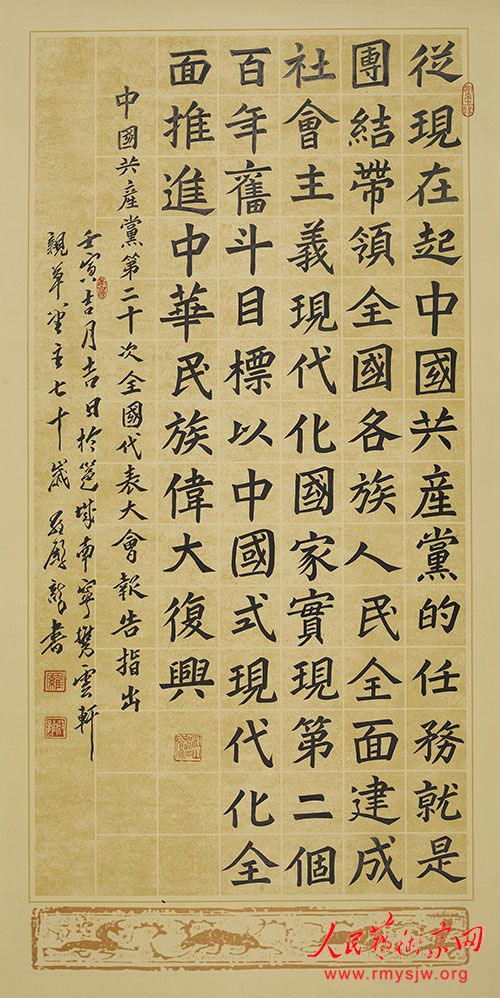 從現在起中國共産黨的任務就是
團結帶領全國各族人民全面建成
社會主義現代化國家實現第二個
百年奮斗目標以中國式現代化全
面推進中華民族偉大復興
中國共産黨第二十次全國代表大會報告指出
壬寅吉月吉日於邕城南寧雲軒
親草堂主七十歲龍書
人民艺术家网
www.rmysjw.org